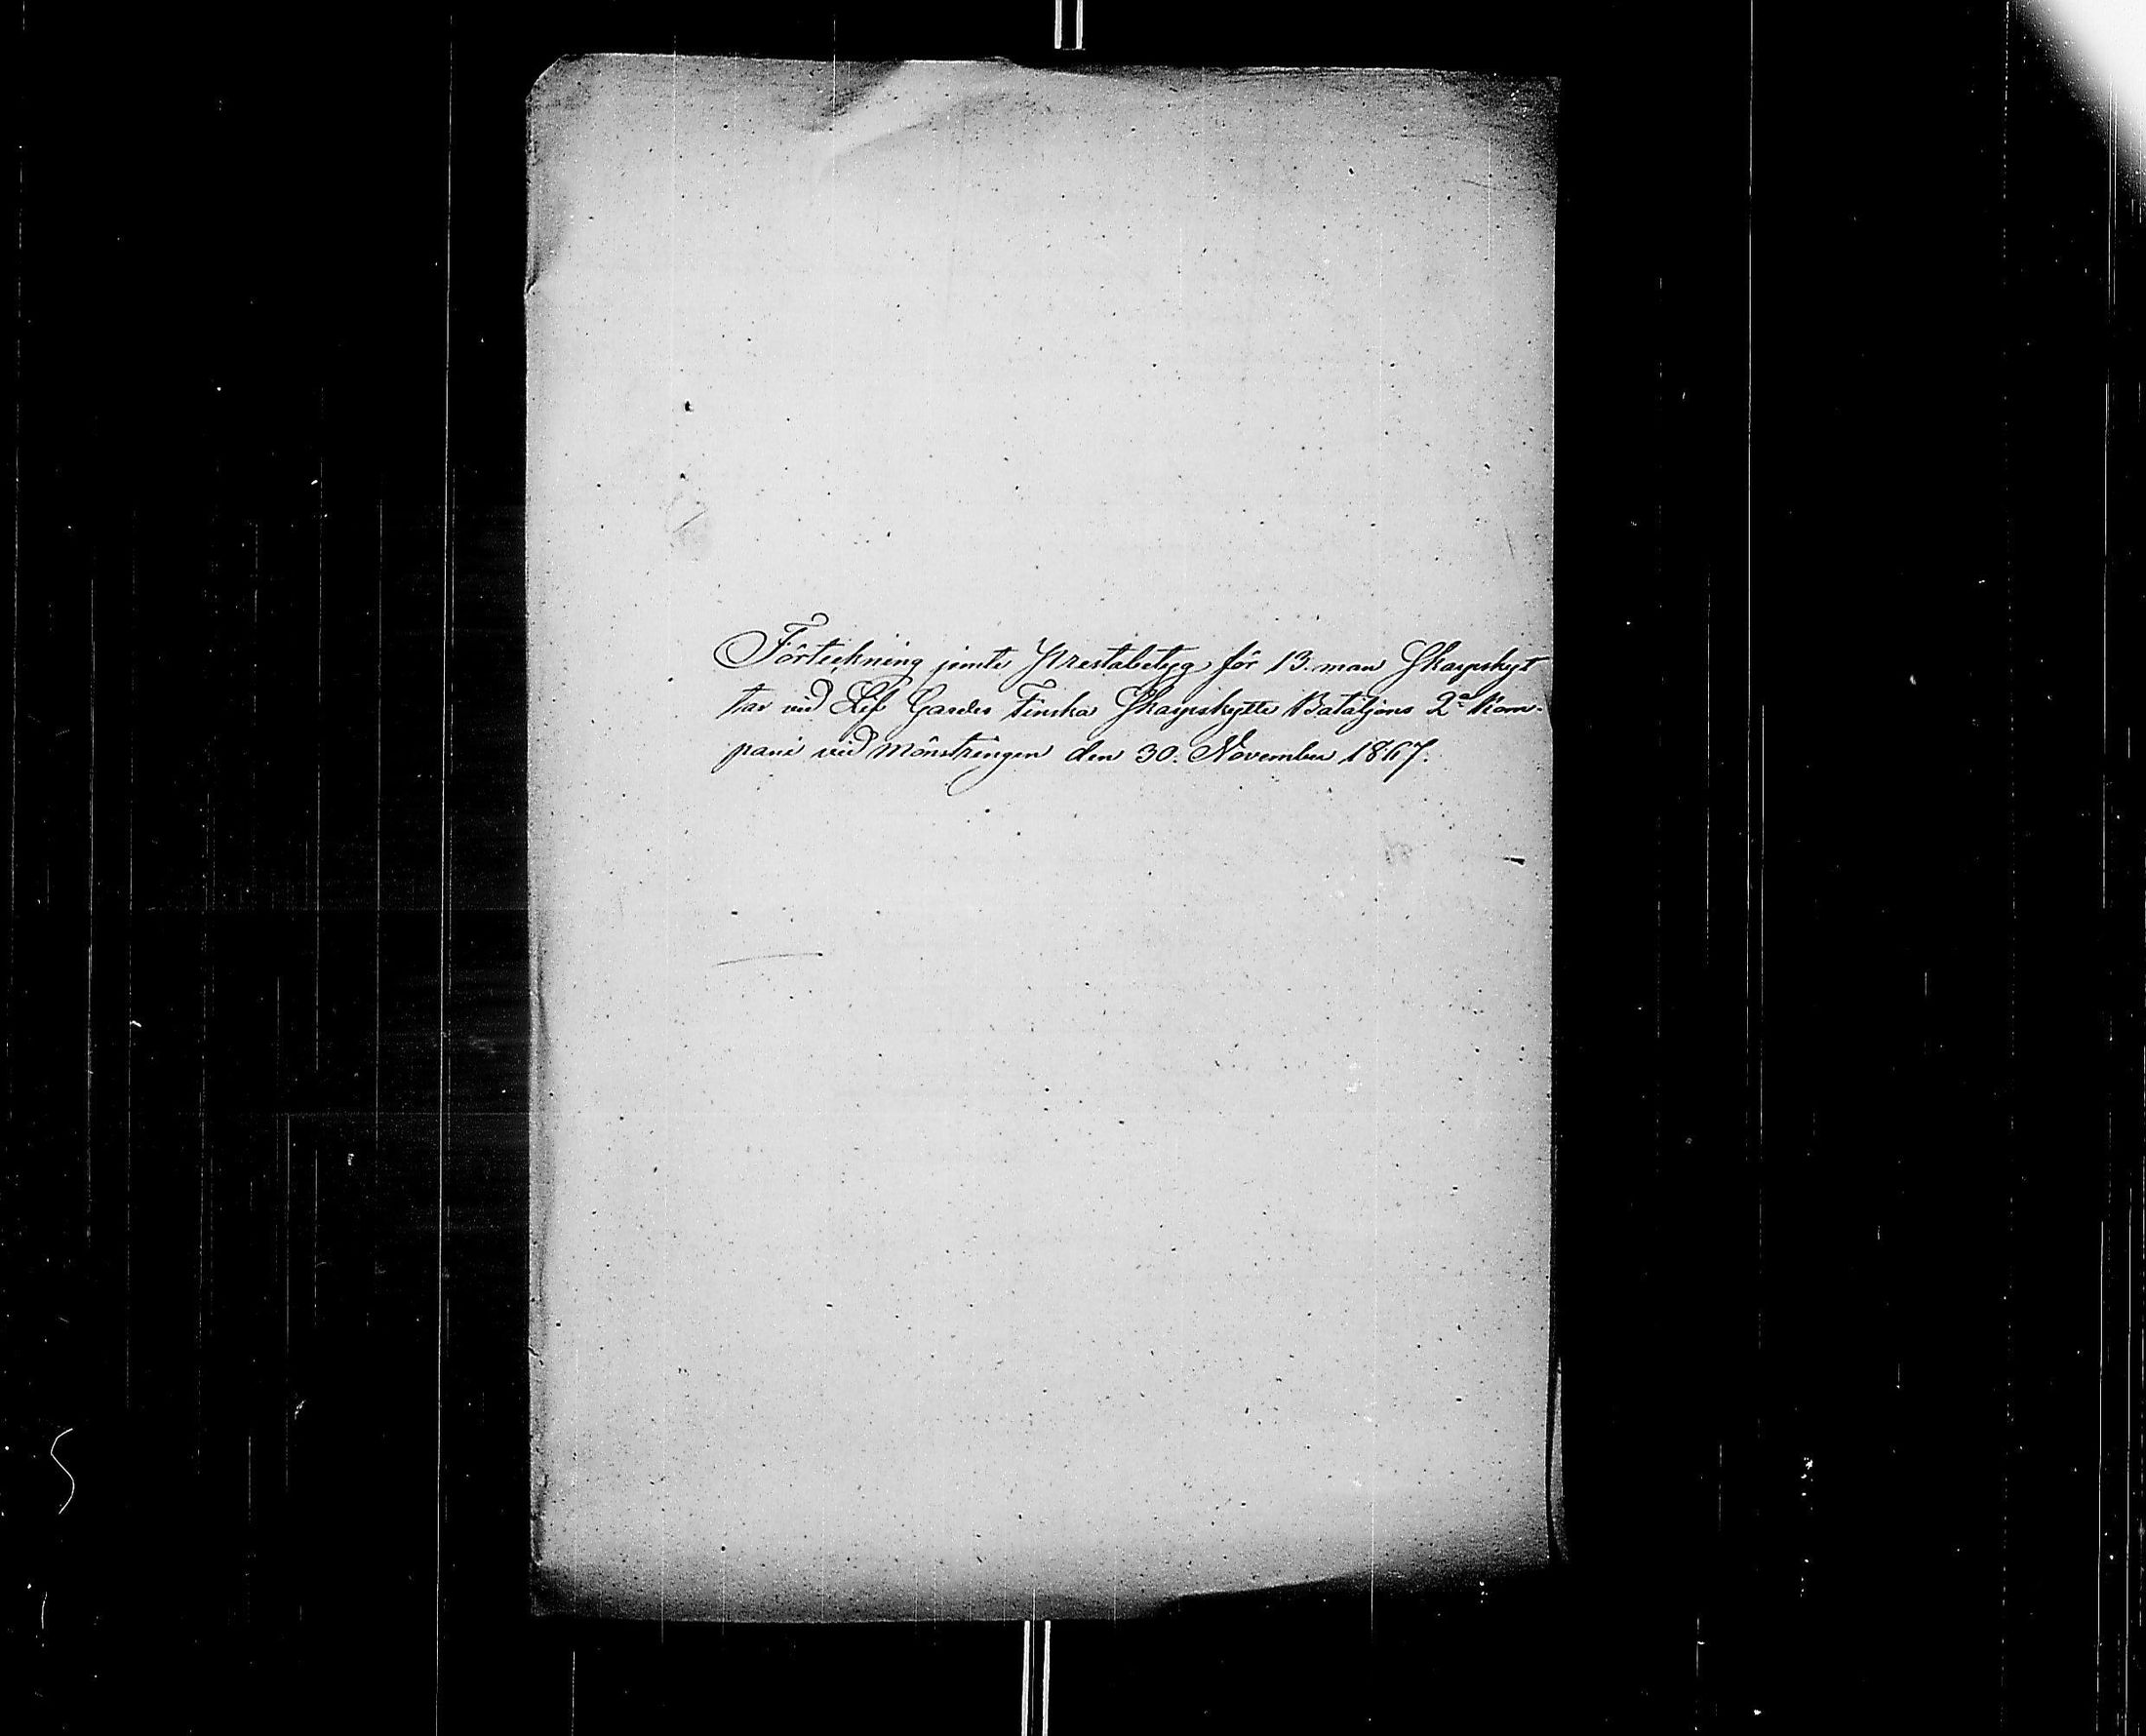 Förteckning jemte Prestabetyg för 13. man Skarpskyt
tar vid Lif Gardes Finska Skarpskytte Bataljons 2a Kom-
pani vid mönstringen den 30. November 1867.